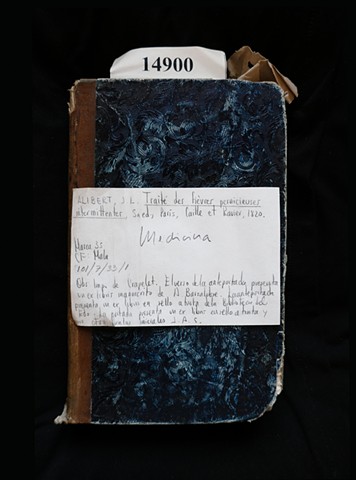 14900
ALIBERT, J.L. Traité des fièvres pernicieuses
intermittentes. 5a ed. París, Caille et Ravier, 1820.
Medicina
Marca SS
CF: Malo
101/7/33/1
Obs: Impr. de Crapelet. El verso de la anteportada presenta
un ex libris manuscrito de M. Barcelobre. La anteportada
presenta un ex libris en sello a tinta de la Biblioteca del
la portada presenta un ex libris en sello a tinta y
con las iniciales J. A. S.